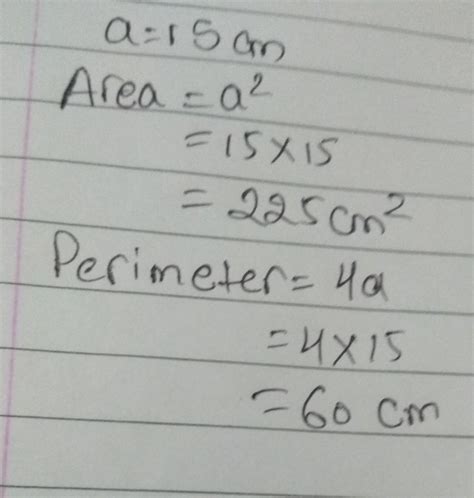 a=15 cm
Area = a²
= 15 × 15
= 225 cm²
Perimeter = 4a
= 4 × 15
= 60 cm